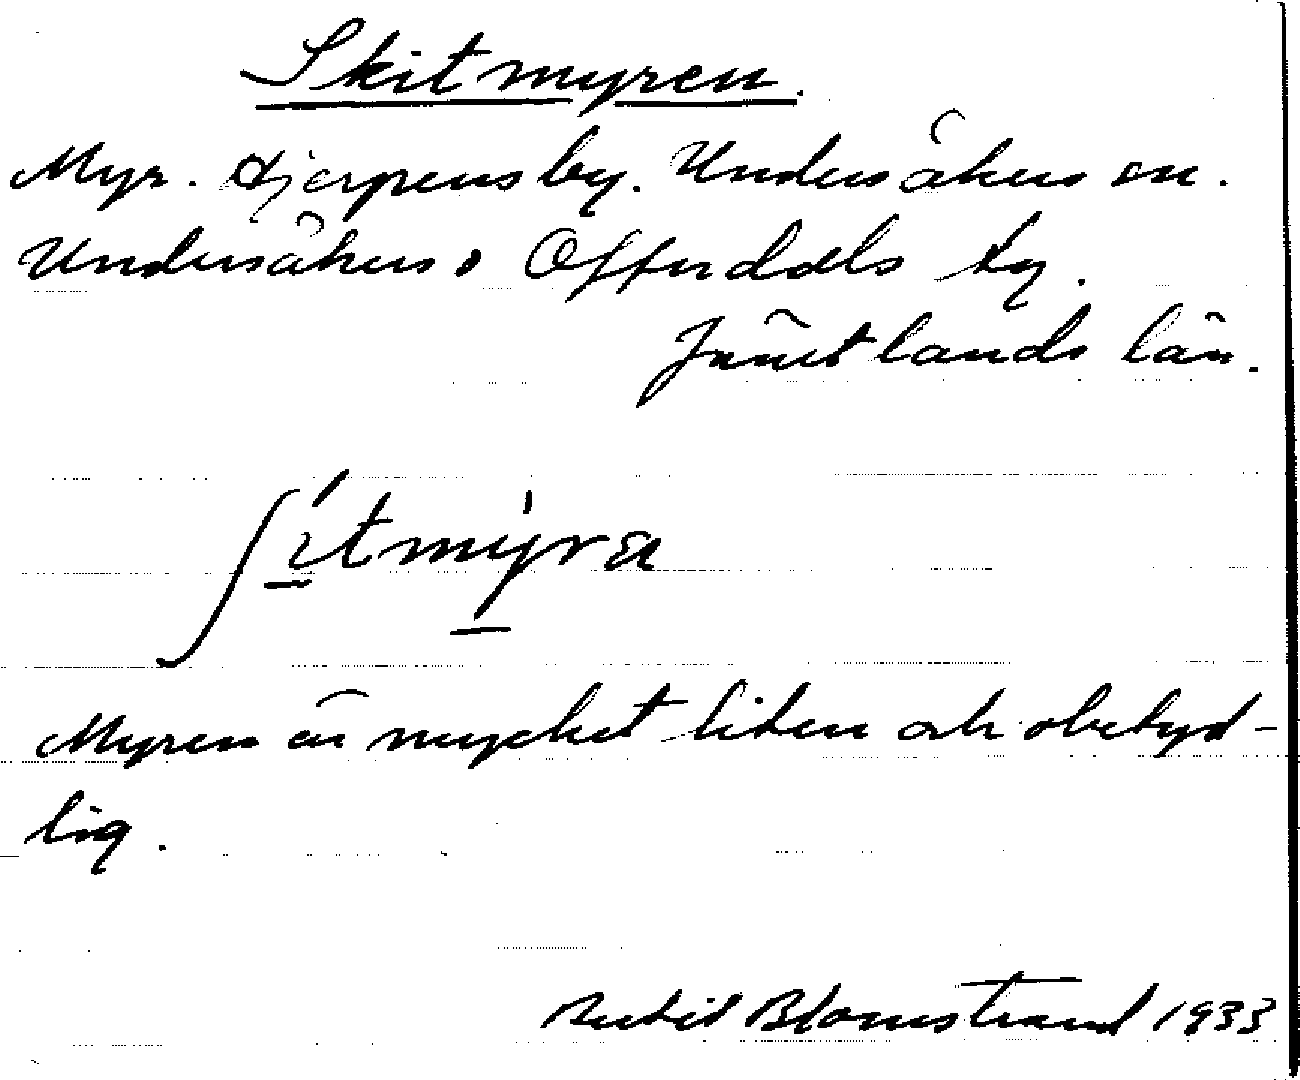 Skitmyren.
Myr. Hjerpens by. Undersåkers sn.
Undersåkers o Offerdals tg.
Jämtlands län.
ʃítmýra
Myren är mycket liten och obetyd-
lig.
Blomstrand 1933